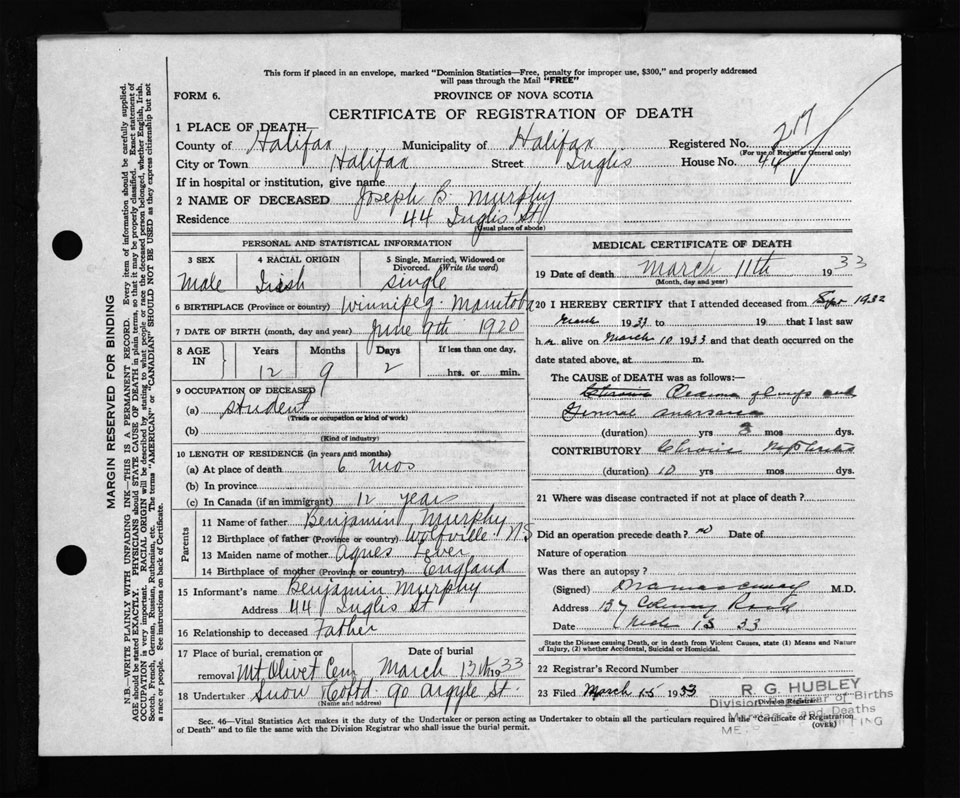 This form if placed in an envelope, marked "Dominion Statistics—Free, penalty for improper use, $300," and properly addressed
will pass through the Mail "FREE"
FORM 6.
PROVINCE OF NOVA SCOTIA
CERTIFICATE OF REGISTRATION OF DEATH
1 PLACE OF DEATH—
County of Halifax Municipality of Halifax Registered No.
(For use of Registrar General only)
City or Town Halifax Street Inglis House No. 44
If in hospital or institution, give name
2 NAME OF DECEASED Joseph B. Murphy
Residence 44 Inglis St
(Usual place of abode)
PERSONAL AND STATISTICAL INFORMATION
3 SEX 4 RACIAL ORIGIN 5 Single, Married, Widowed or Divorced. (Write the word)
Male Irish Single
6 BIRTHPLACE (Province or country) Winnipeg. Manitoba
7 DATE OF BIRTH (month, day and year) June 9th 1920
8 AGE IN Years Months Days If less than one day,
12 9 2 hrs. or min.
9 OCCUPATION OF DECEASED
(a) Student
(Trade or occupation or kind of work)
(b)
(Kind of industry)
10 LENGTH OF RESIDENCE (in years and months)
(a) At place of death 6 mos
(b) In province
(c) In Canada (if an immigrant) 12 years
Parents
11 Name of father Benjamin Murphy
12 Birthplace of father (Province or country) Wolfville. NS
13 Maiden name of mother Agnes Lever
14 Birthplace of mother (Province or country) England
15 Informant's name Benjamin Murphy
Address 44 Inglis St
16 Relationship to deceased Father
17 Place of burial, cremation or removal Date of burial
Mt Olivet Cem March 13th 1933
18 Undertaker Snow 90 Argyle St.
(Name and address)
MEDICAL CERTIFICATE OF DEATH
19 Date of death March 11th 1933
(Month, day and year)
20 I HEREBY CERTIFY that I attended deceased from 1932
March 1933 to 19 that I last saw
h alive on March 10 1933 and that death occurred on the
date stated above, at m.
The CAUSE of DEATH was as follows:
Oedema of lungs and
General anasarca
(duration) yrs 3 mos dys.
CONTRIBUTORY Chronic Nephritis
(duration) 10 yrs mos dys.
21 Where was disease contracted if not at place of death?
Did an operation precede death? no Date of
Nature of operation
Was there an autopsy?
(Signed) M.D.
Address 137 Road
Date 15 33
State the Disease causing Death, or in death from Violent Causes, state (1) Means and Nature
of Injury, (2) whether Accidental, Suicidal or Homicidal.
22 Registrar's Record Number
23 Filed March 15 1933
Division Registrar
R. G. HUBLEY
Division Registrar of Births
and Deaths
Sec. 46—Vital Statistics Act makes it the duty of the Undertaker or person acting as Undertaker to obtain all the particulars required in the "Certificate of Registration
of Death" and to file the same with the Division Registrar who shall issue the burial permit.
(OVER)
MARGIN RESERVED FOR BINDING
N.B.—WRITE PLAINLY WITH UNFADING INK—THIS IS A PERMANENT RECORD. Every item of information should be carefully supplied.
AGE should be stated EXACTLY. PHYSICIANS should STATE CAUSE OF DEATH in plain terms, so that it may be properly classified. Exact statement of
OCCUPATION is very important. RACIAL ORIGIN will be described by stating to what people or race the deceased person belonged, whether English, Irish,
Scotch, French, German, Russian, Ruthenian, etc. The terms "AMERICAN" or "CANADIAN" SHOULD NOT BE USED as they express citizenship but not
a race or people. See instructions on back of Certificate.